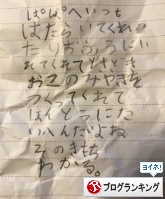 ぱぱへいつも
はたらいてくれ
たりおふろにい
れてくれてときどき
おこのみやきを
つくってくれて
ほんとうにた
いへんだよね
そのきもち
わかる。
ヨイネ!
ブログランキング